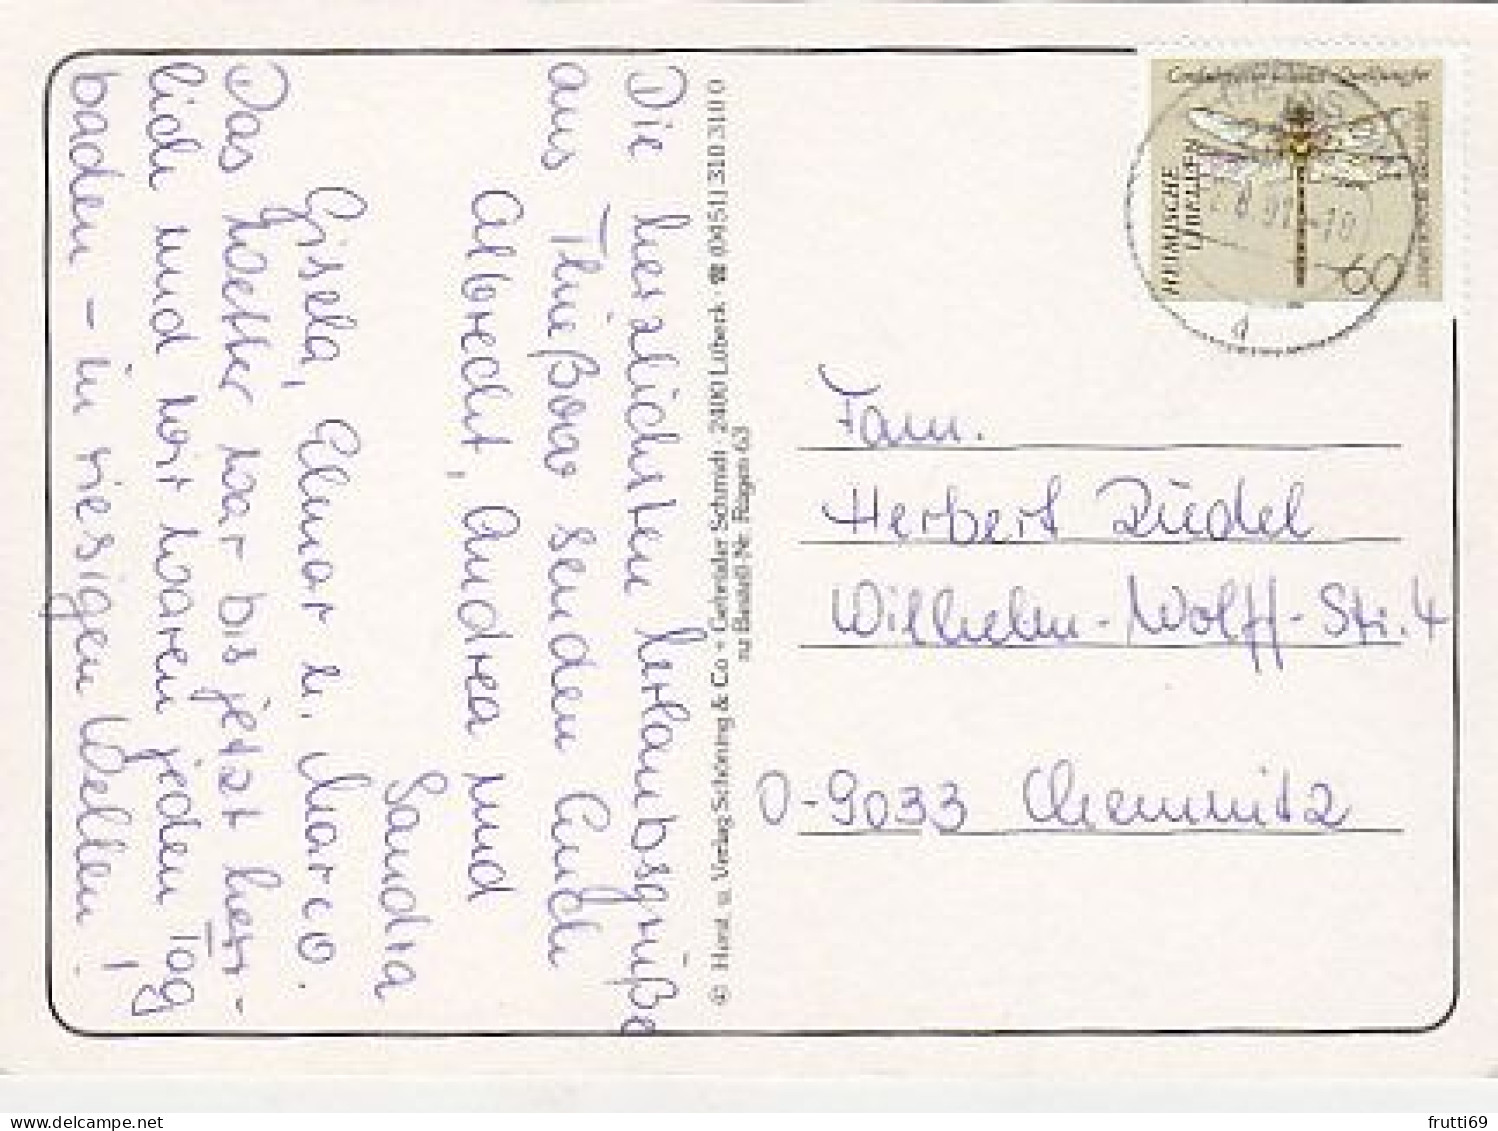 Die herzlichsten Urlaubsgrüße
aus Thießow senden Euch
Albrecht, Andrea und
Sandra
Gisela, Elmar u. Marco.
Das Wetter war bis jetzt herr-
lich und wir waren jeden Tag
baden - in riesigen Wellen!
© Horst u. Verlag Schöning & Co + Gebrüder Schmidt · 2400 Lübeck · ☎ (0451) 310 310
zu Bestell-Nr. Rügen 63
HEIMISCHE
LIBELLEN
60
Fam.
Herbert Rüdel
Wilhelm-Wolff-Str. 4
O-9033 Chemnitz
frutti69